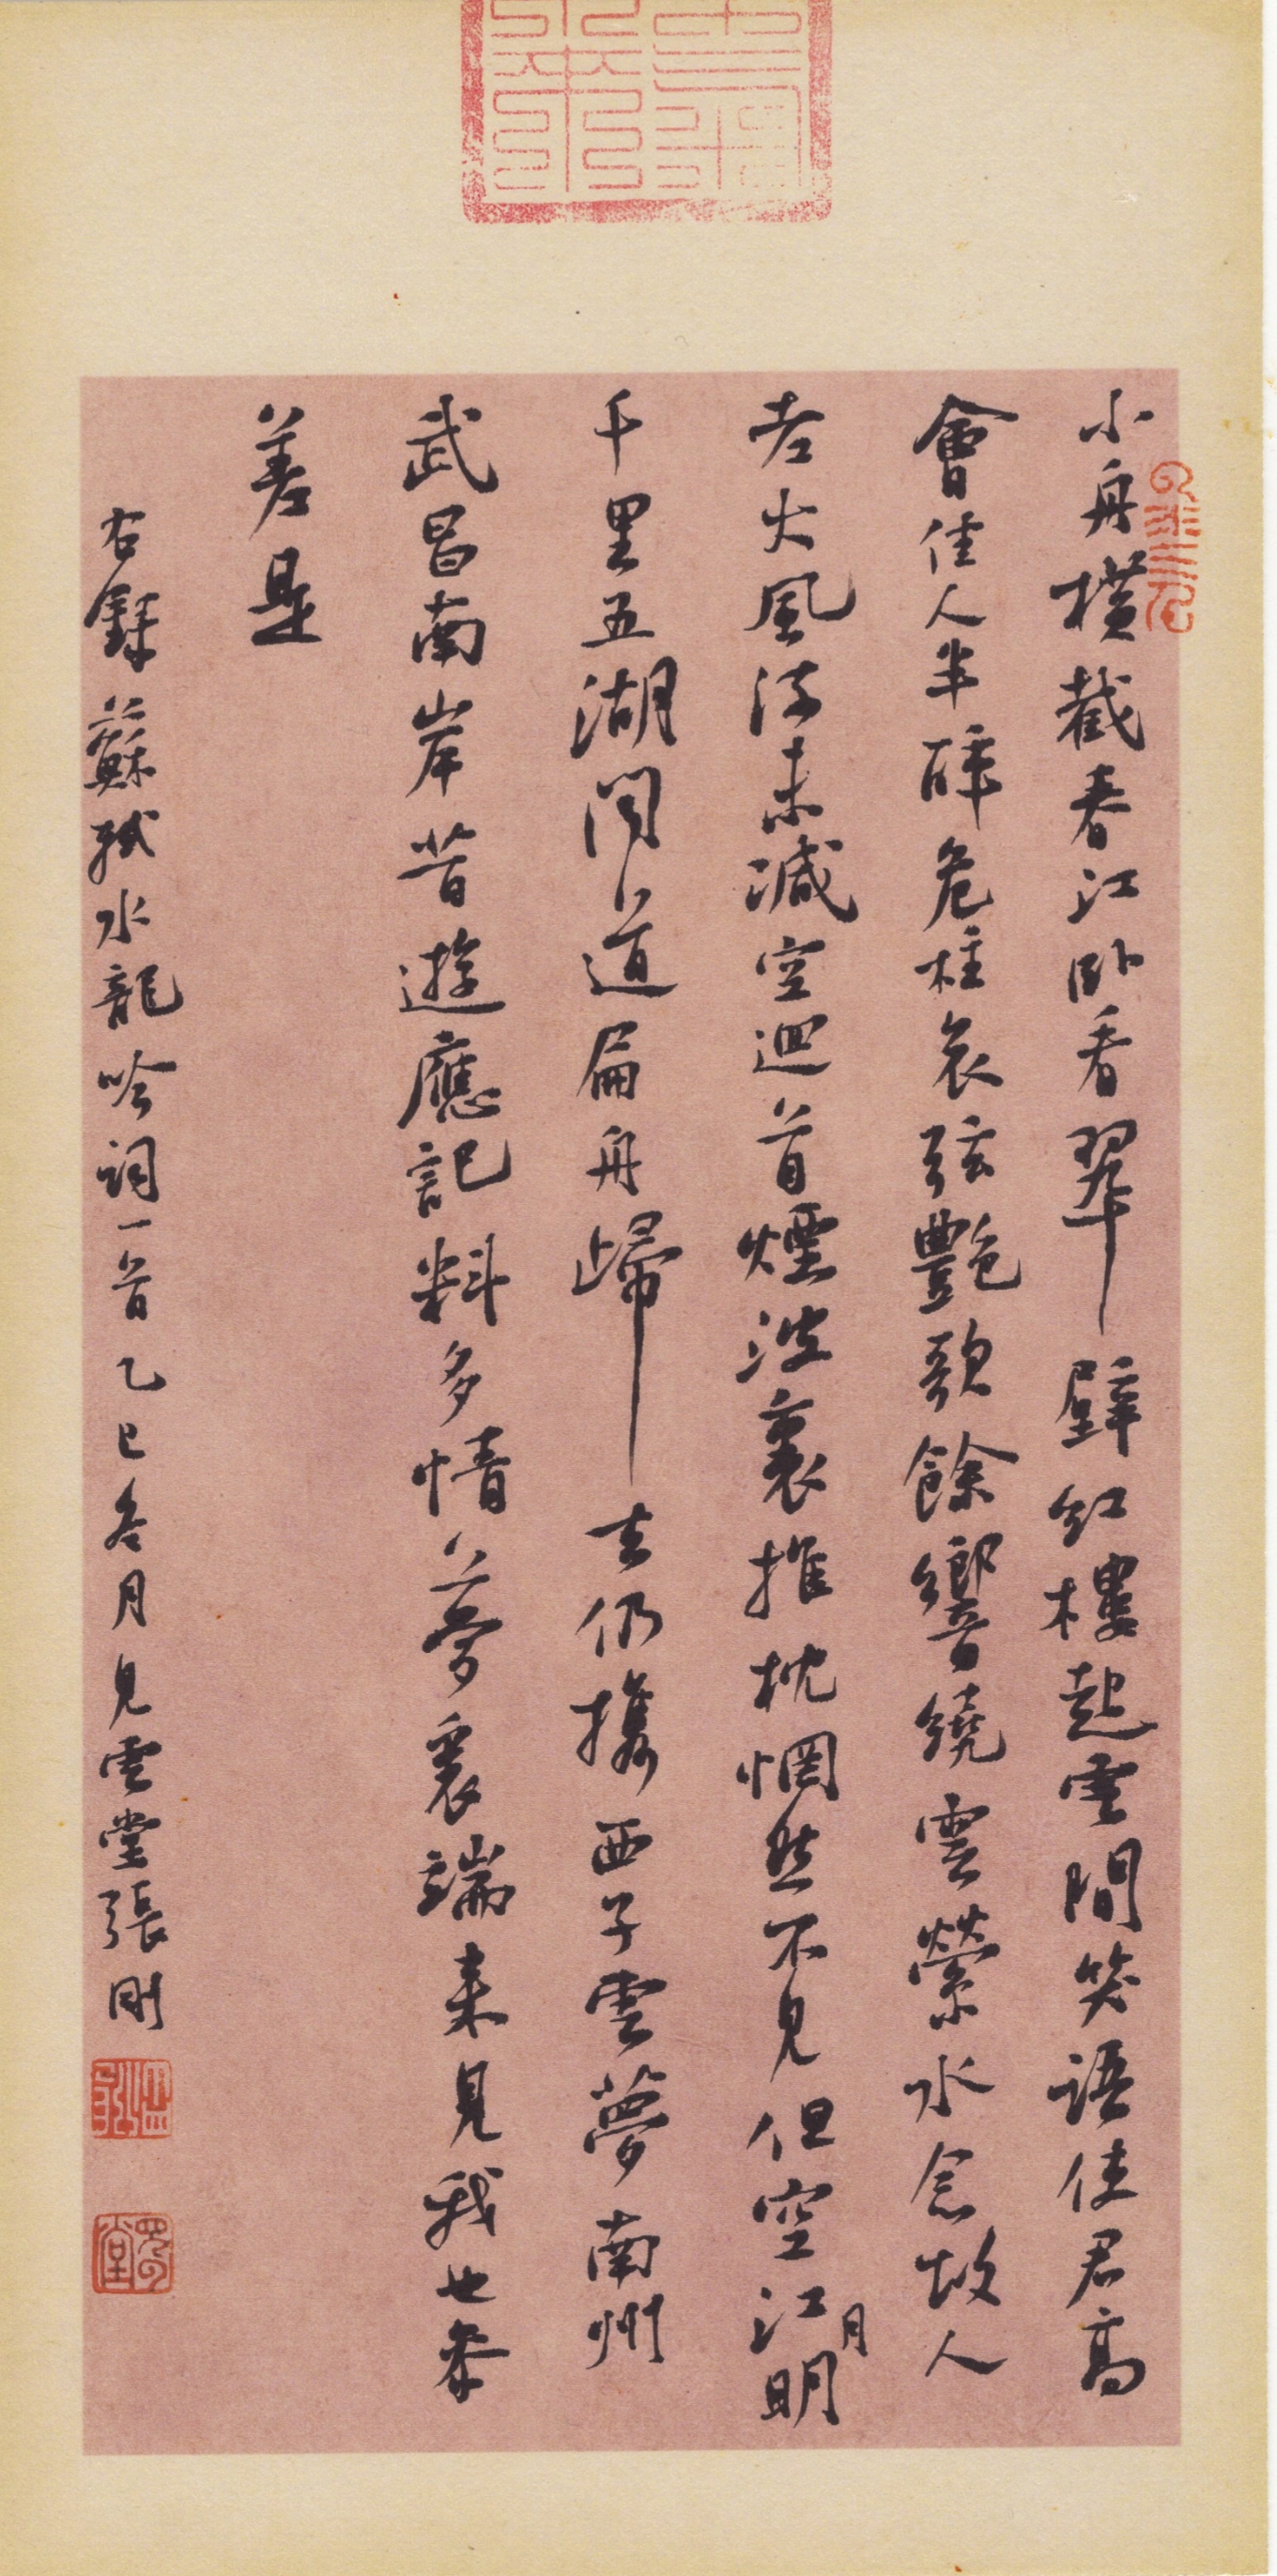 小舟橫截春江卧看翠壁紅樓起雲間笑語使君高
會佳人半醉危柱哀弦豔歌餘響繞雲縈水念故人
老火風流未減空迴首煙波裏推枕惘然不見但空江月明
千里五湖聞道扁舟歸去仍攜西子雲夢南州
武昌南岸昔遊應記料多情夢裏端來見我也參
差是
右錄蘇軾水龍吟詞一首乙巳冬月見雲堂張剛